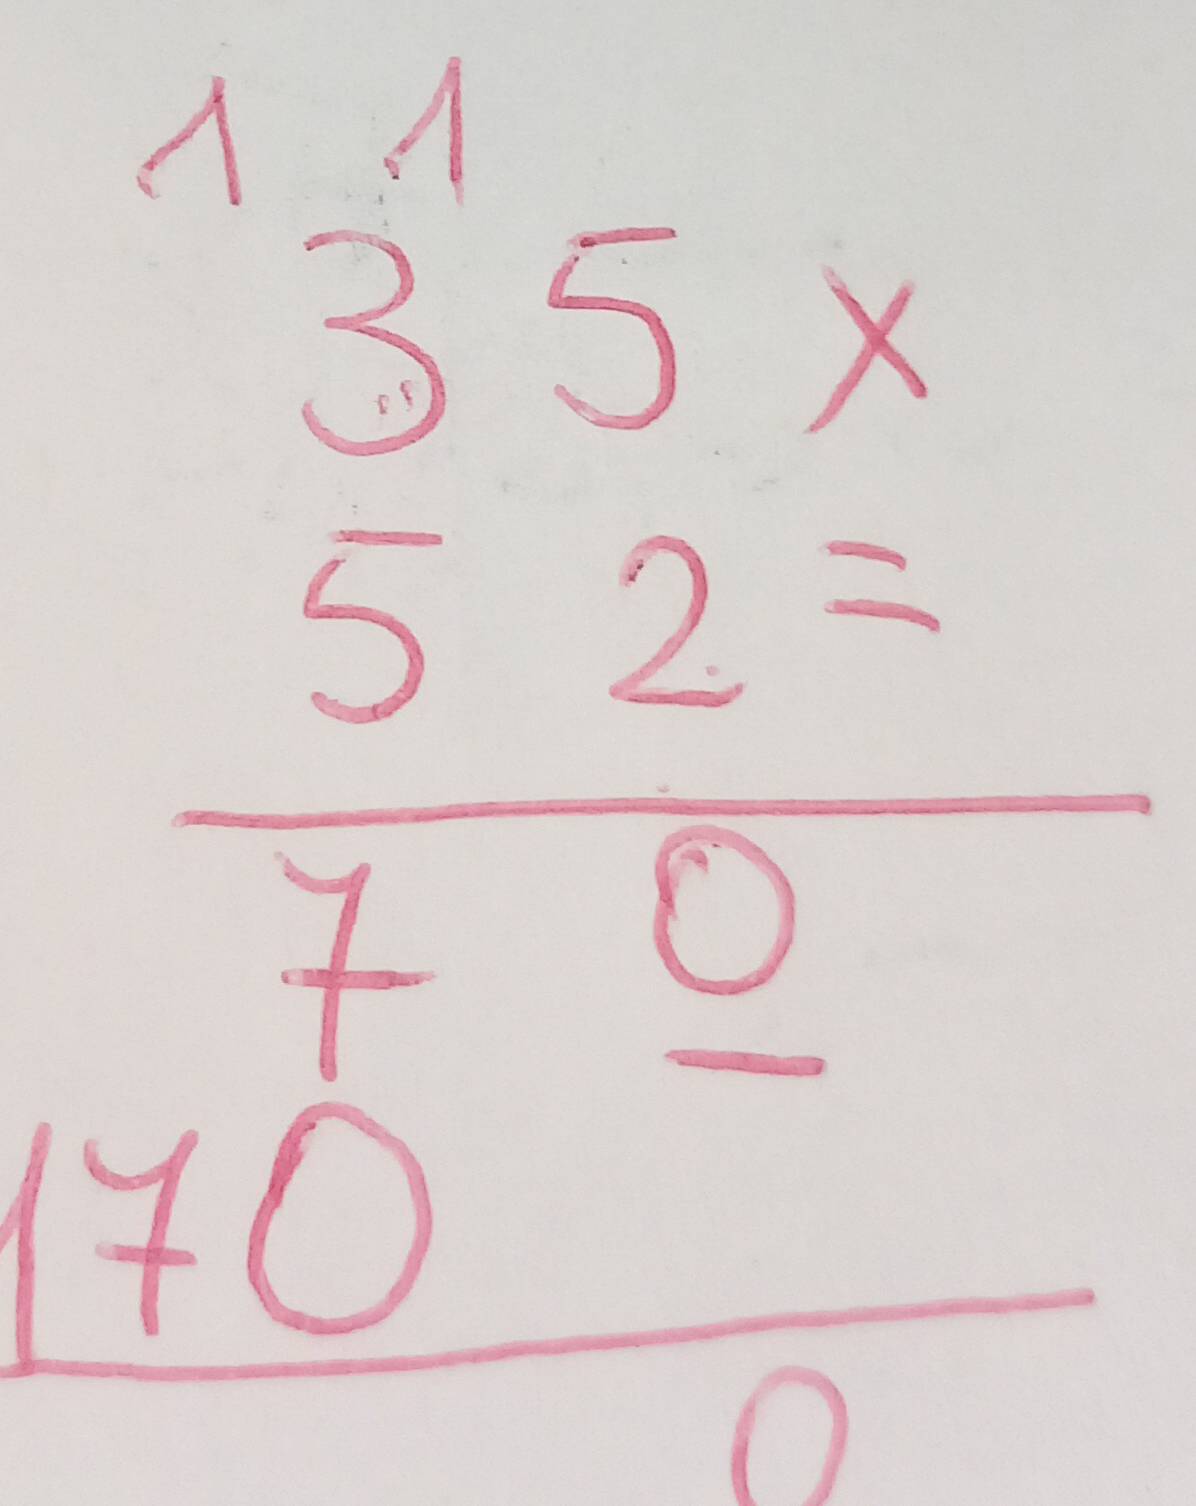 1 1
3 5 x
5 2 =
7 0
170
0